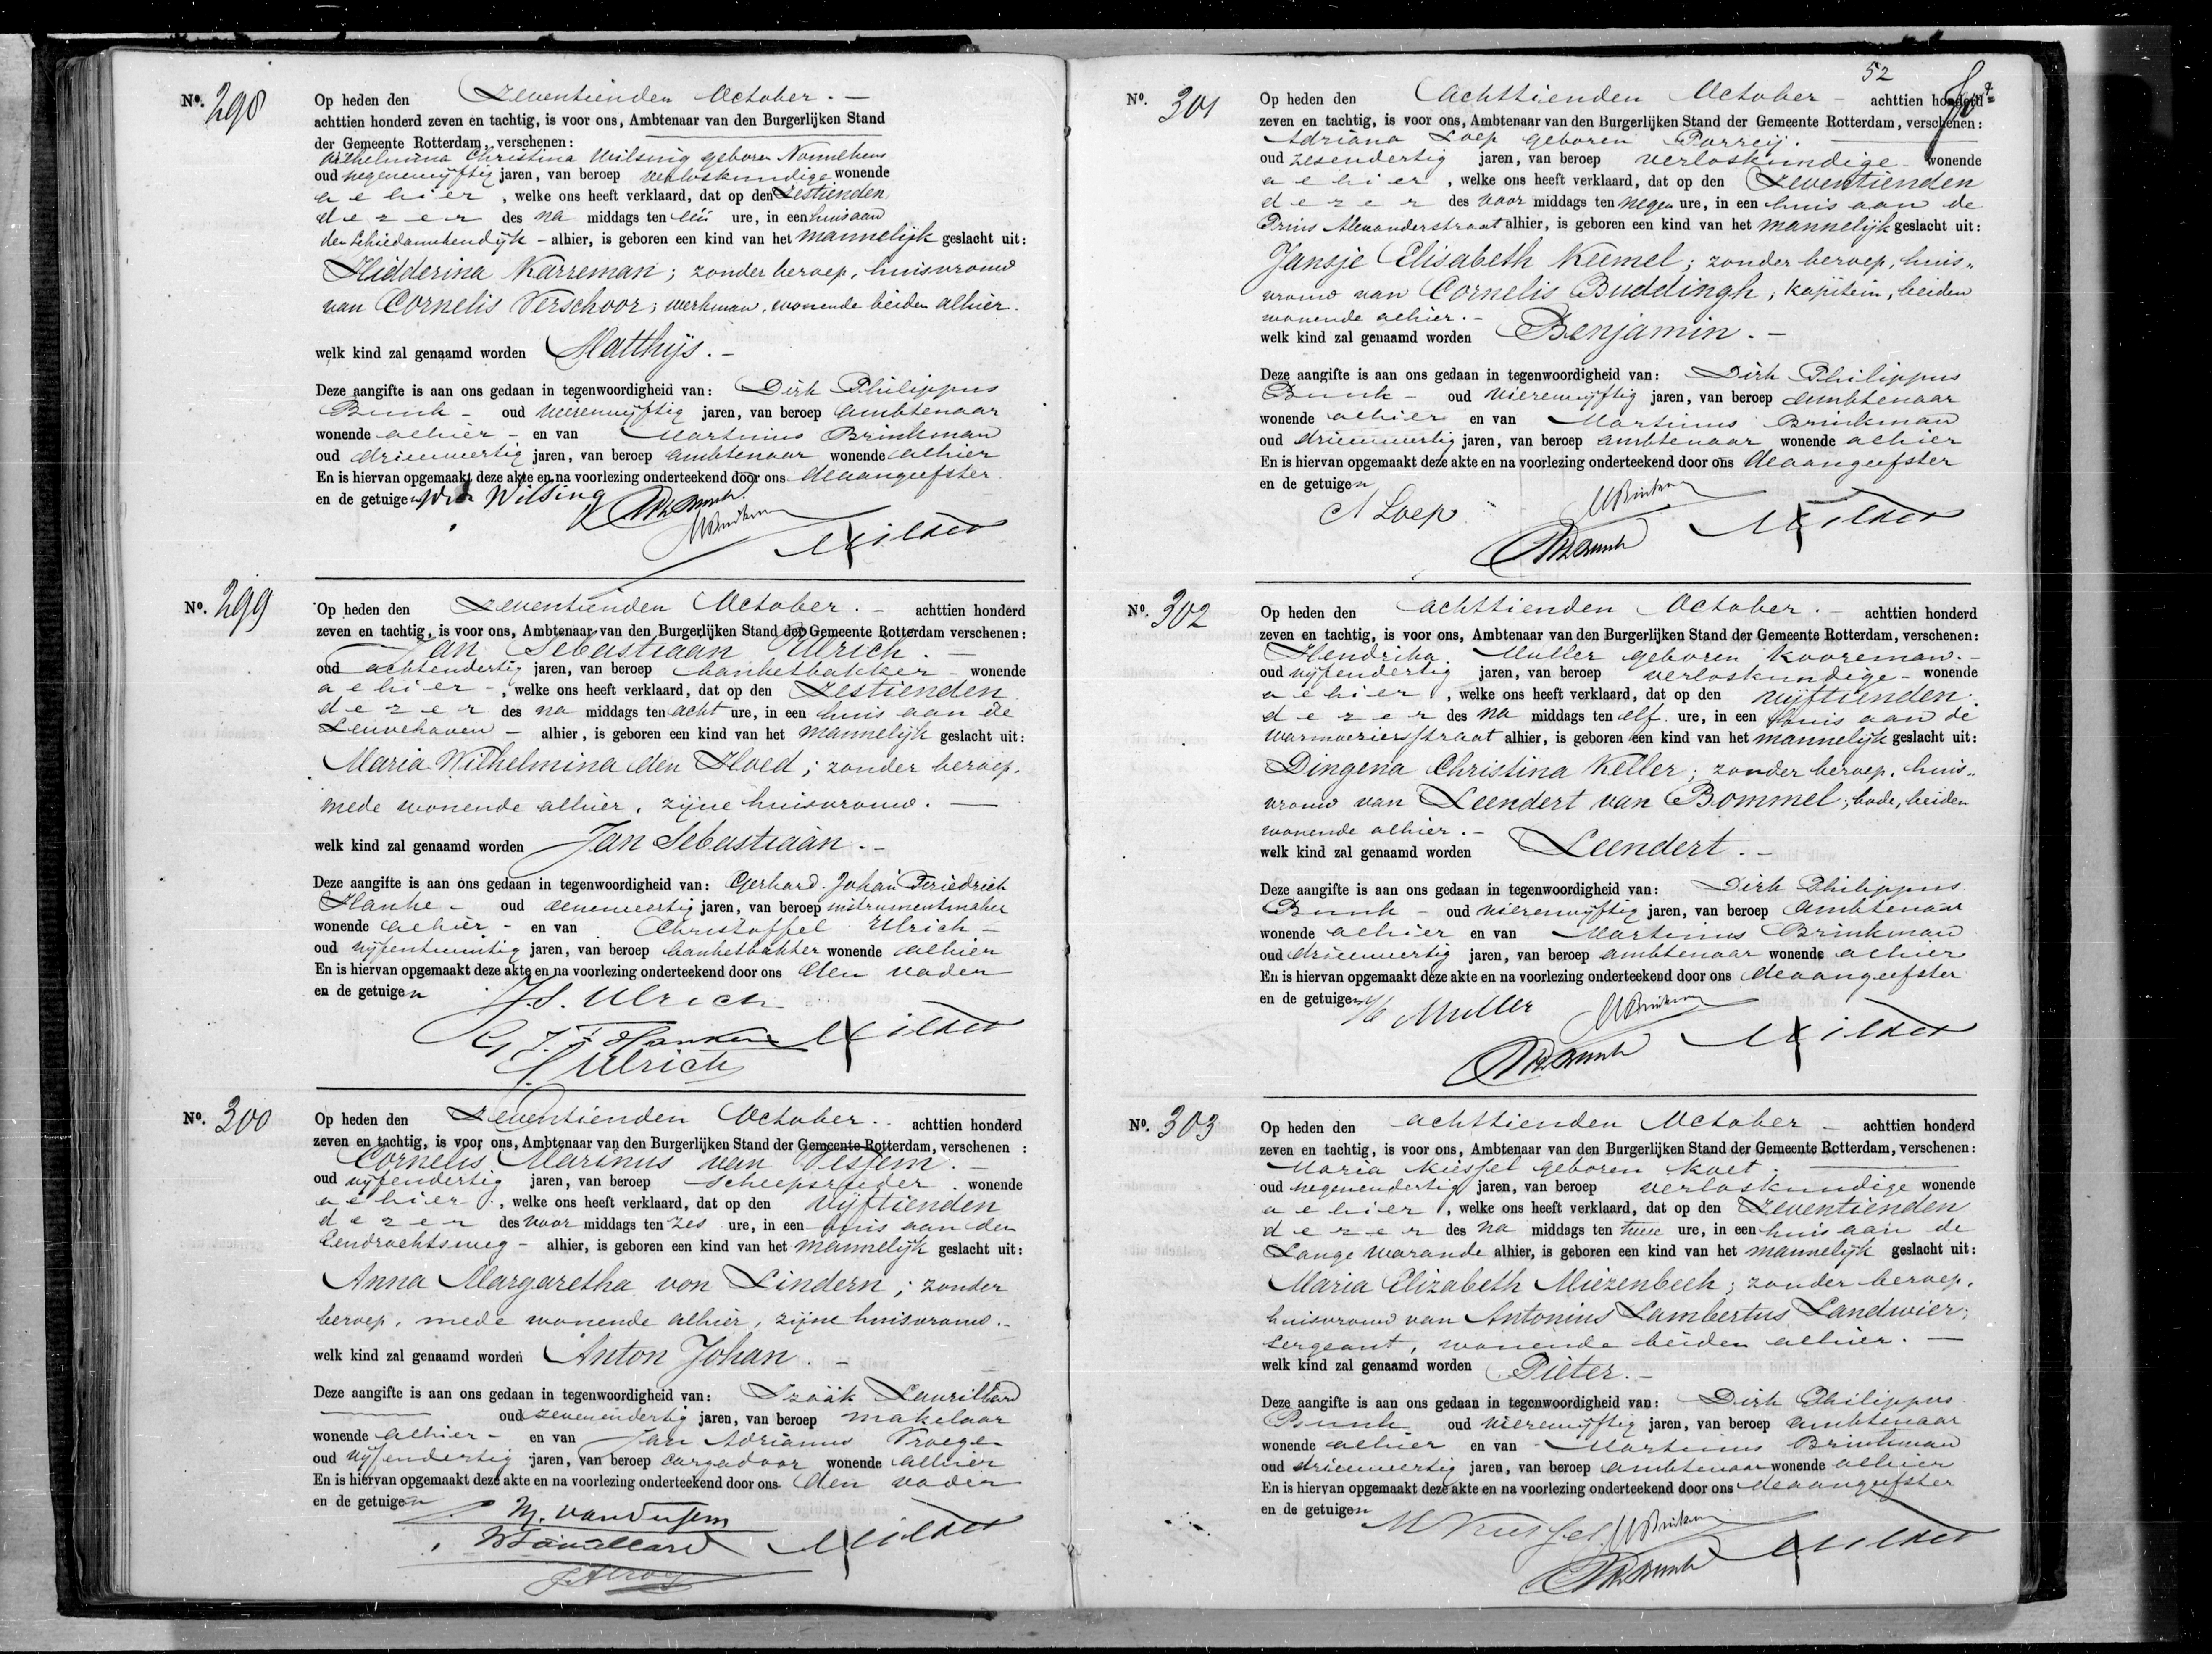 No. 298
Op heden den Zeventienden October. —
achttien honderd zeven en tachtig, is voor ons, Ambtenaar van den Burgerlijken Stand
der Gemeente Rotterdam, verschenen:
Wilhelmina Christina Wilsing geboren Nonnekens
oud negenenvijftig jaren, van beroep verloskundige wonende
alhier, welke ons heeft verklaard, dat op den Zestienden
dezer des na middags ten één ure, in een huis aan
den Schiedamschendijk — alhier, is geboren een kind van het mannelijk geslacht uit:
Hidderina Karreman; zonder beroep, huisvrouw
van Cornelis Verschoor; werkman, wonende beiden alhier.
welk kind zal genaamd worden Matthijs. —
Deze aangifte is aan ons gedaan in tegenwoordigheid van: Dirk Philippus
Bunk — oud vierenvijftig jaren, van beroep ambtenaar
wonende alhier — en van Martinus Brinkman
oud drieenveertig jaren, van beroep ambtenaar wonende alhier
En is hiervan opgemaakt deze akte en na voorlezing onderteekend door ons de aangeefster
en de getuigen Wilsing
No. 299
Op heden den Zeventienden October. — achttien honderd
zeven en tachtig, is voor ons, Ambtenaar van den Burgerlijken Stand der Gemeente Rotterdam verschenen:
Jan Sebastiaan Ulrich. —
oud achtendertig jaren, van beroep banketbakker — wonende
alhier —, welke ons heeft verklaard, dat op den Zestienden
dezer des na middags ten acht ure, in een huis aan de
Leuvehaven — alhier, is geboren een kind van het mannelijk geslacht uit:
Maria Wilhelmina den Hoed; zonder beroep,
mede wonende alhier, zijne huisvrouw. —
welk kind zal genaamd worden Jan Sebastiaan. —
Deze aangifte is aan ons gedaan in tegenwoordigheid van: Gerhard Johan Friedrich
Hanke — oud eenenveertig jaren, van beroep instrumentmaker
wonende alhier — en van Christoffel Ulrich —
oud vijfentwintig jaren, van beroep banketbakker wonende alhier
En is hiervan opgemaakt deze akte en na voorlezing onderteekend door ons den vader
en de getuigen J.S. Ulrich
G J. F Hanken
C Ulrich
No. 300
Op heden den Zeventienden October. achttien honderd
zeven en tachtig, is voor ons, Ambtenaar van den Burgerlijken Stand der Gemeente Rotterdam, verschenen:
Cornelis Marinus van Vessem. —
oud vijfendertig jaren, van beroep scheepsreeder. wonende
alhier, welke ons heeft verklaard, dat op den vijftienden
dezer des voor middags ten zes ure, in een huis aan den
Eendrachtsweg — alhier, is geboren een kind van het mannelijk geslacht uit:
Anna Margaretha von Lindern; zonder
beroep, mede wonende alhier, zijne huisvrouw. —
welk kind zal genaamd worden Anton Johan. —
Deze aangifte is aan ons gedaan in tegenwoordigheid van: Izaäk Laurillard
oud zevenendertig jaren, van beroep makelaar
wonende alhier — en van Jan Adrianus Kroege
oud vijfendertig jaren, van beroep cargadoor wonende alhier
En is hiervan opgemaakt deze akte en na voorlezing onderteekend door ons den vader
en de getuigen M. van Vessem
52
No. 301
Op heden den Achttienden October — achttien honderd
zeven en tachtig, is voor ons, Ambtenaar van den Burgerlijken Stand der Gemeente Rotterdam, verschenen:
Adriana Loep geboren Porreij. —
oud zesendertig jaren, van beroep verloskundige — wonende
alhier, welke ons heeft verklaard, dat op den Zeventienden
dezer des voor middags ten negen ure, in een huis aan de
Prins Alexanderstraat alhier, is geboren een kind van het mannelijk geslacht uit:
Jansje Elisabeth Keemel; zonder beroep, huis-
vrouw van Cornelis Buddingh; kapitein, beiden
wonende alhier. —
welk kind zal genaamd worden Benjamin. —
Deze aangifte is aan ons gedaan in tegenwoordigheid van: Dirk Philippus
Bunk — oud vierenvijftig jaren, van beroep ambtenaar
wonende alhier en van Martinus Brinkman
oud drieenveertig jaren, van beroep ambtenaar wonende alhier
En is hiervan opgemaakt deze akte en na voorlezing onderteekend door ons de aangeefster
en de getuigen
A Loep
No. 302
Op heden den achttienden October. — achttien honderd
zeven en tachtig, is voor ons, Ambtenaar van den Burgerlijken Stand der Gemeente Rotterdam, verschenen:
Hendrika Muller geboren Kooreman. —
oud vijfendertig jaren, van beroep verloskundige — wonende
alhier, welke ons heeft verklaard, dat op den vijftienden
dezer des na middags ten elf ure, in een huis aan de
Warmoeziersstraat alhier, is geboren een kind van het mannelijk geslacht uit:
Dingena Christina Keller; zonder beroep, huis-
vrouw van Leendert van Bommel; bode, beiden
wonende alhier. —
welk kind zal genaamd worden Leendert. —
Deze aangifte is aan ons gedaan in tegenwoordigheid van: Dirk Philippus
Bunk — oud vierenvijftig jaren, van beroep ambtenaar
wonende alhier en van Martinus Brinkman
oud drieenveertig jaren, van beroep ambtenaar wonende alhier
En is hiervan opgemaakt deze akte en na voorlezing onderteekend door ons de aangeefster
en de getuigen H Muller
No. 303
Op heden den achttienden October — achttien honderd
zeven en tachtig, is voor ons, Ambtenaar van den Burgerlijken Stand der Gemeente Rotterdam, verschenen:
Maria Kiessel geboren Koet. —
oud negenendertig jaren, van beroep verloskundige wonende
alhier, welke ons heeft verklaard, dat op den Zeventienden
dezer des na middags ten twee ure, in een huis aan de
Lange Warande alhier, is geboren een kind van het mannelijk geslacht uit:
Maria Elizabeth Miezenbeek; zonder beroep,
huisvrouw van Antonius Lambertus Landwier;
sergeant, wonende beiden alhier. —
welk kind zal genaamd worden Pieter. —
Deze aangifte is aan ons gedaan in tegenwoordigheid van: Dirk Philippus
Bunk oud vierenvijftig jaren, van beroep ambtenaar
wonende alhier en van Martinus Brinkman
oud drieenveertig jaren, van beroep ambtenaar wonende alhier
En is hiervan opgemaakt deze akte en na voorlezing onderteekend door ons de aangeefster
en de getuigen